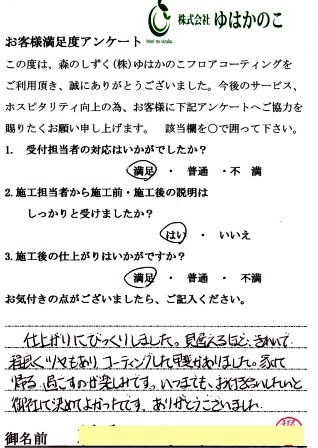 株式会社 ゆはかのこ
お客様満足度アンケート
この度は、森のしずく(株)ゆはかのこフロアコーティングを
ご利用頂き、誠にありがとうございました。今後のサービス、
ホスピタリティ向上の為、お客様に下記アンケートへご協力を
賜りたくお願い申し上げます。 該当欄を○で囲って下さい。
1. 受付担当者の対応はいかがでしたか?
満足 ・ 普通 ・不 満
2.施工担当者から施工前・施工後の説明は
しっかりと受けましたか?
はい ・ いいえ
3.施工後の仕上がりはいかがですか?
満足 ・ 普通 ・ 不満
お気付きの点がございましたら、ご記入ください。
仕上がりにびっくりしました。見違えるほど、きれいで
程良くツヤもあり コーティングした甲斐がありました。
帰る、過ごすのが楽しみです。いつまでも、お付き合いしたいと
御社に決めてよかったです。ありがとうございました
御名前